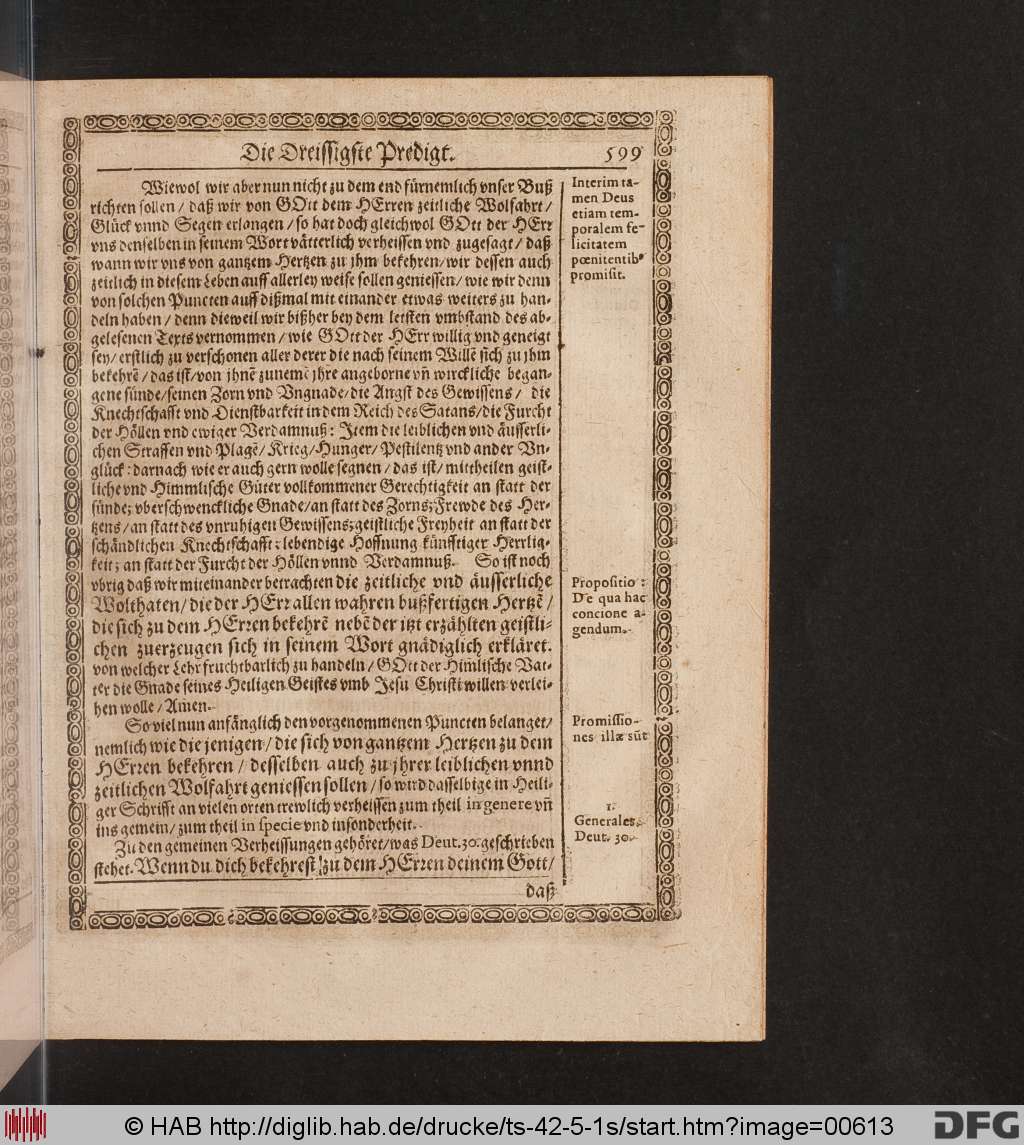 Die Dreissigste Predigt. 599
Wiewol wir aber nun nicht zu dem end fürnemlich vnser Buß
richten sollen / daß wir von GOtt dem HErren zeitliche Wolfahrt /
Glück vnnd Segen erlangen / so hat doch gleichwol GOtt der HErr
vns denselben in seinem Wort vätterlich verheissen vnd zugesagt / daß
wann wir vns von gantzem Hertzen zu jhm bekehren / wir dessen auch
zeitlich in diesem Leben auff allerley weise sollen geniessen / wie wir denn
von solchen Puncten auff dißmal mit einander etwas weiters zu han-
deln haben / denn dieweil wir bißher bey dem letsten vmbstand des ab-
gelesenen Texts vernommen / wie GOtt der HErr willig vnd geneigt
sey / erstlich zu verschonen aller derer die nach seinem Willē sich zu jhm
bekehrē / das ist / von jhnē zunemē jhre angeborne vñ wirckliche began-
gene sünde / seinen Zorn vnd Vngnade / die Angst des Gewissens / die
Knechtschafft vnd Dienstbarkeit in dem Reich des Satans / die Furcht
der Höllen vnd ewiger Verdamnuß: Item die leiblichen vnd äusserli-
chen Straffen vnd Plagē / Krieg / Hunger / Pestilentz vnd ander Vn-
glück: darnach wie er auch gern wolle segnen / das ist / mittheilen geist-
liche vnd Himmlische Güter vollkommener Gerechtigkeit an statt der
sünde; vberschwenckliche Gnade / an statt des Zorns; Frewde des Her-
tzens / an statt des vnruhigen Gewissens; geistliche Freyheit an statt der
schändlichen Knechtschafft; lebendige Hoffnung künfftiger Herrlig-
keit; an statt der Furcht der Höllen vnnd Verdamnuß. So ist noch
vbrig daß wir miteinander betrachten die zeitliche vnd äusserliche
Wolthaten / die der HErr allen wahren bußfertigen Hertzē /
die sich zu dem HErren bekehrē nebē der itzt erzählten geistli-
chen zuerzeugen sich in seinem Wort gnädiglich erkläret.
von welcher Lehr fruchtbarlich zu handeln / GOtt der Him̃lische Vat-
ter die Gnade seines Heiligen Geistes vmb Jesu Christi willen verlei-
hen wolle / Amen.
So viel nun anfänglich den vorgenommenen Puncten belanget /
nemlich wie die jenigen / die sich von gantzem Hertzen zu dem
HErren bekehren / desselben auch zu jhrer leiblichen vnnd
zeitlichen Wolfahrt geniessen sollen / so wird dasselbige in Heili-
ger Schrifft an vielen orten trewlich verheissen zum theil in genere vñ
ins gemein / zum theil in specie vnd insonderheit.
Zu den gemeinen Verheissungen gehöret / was Deut. 30. geschrieben
stehet. Wenn du dich bekehrest zu dem HErren deinem Gott /
daß
Interim ta-
men Deus
etiam tem-
poralem fe-
licitatem
pœnitentib9
promisit.
Propositio:
De qua hac
concione a-
gendum.
Promissio-
nes illæ sūt
1.
Generales.
Deut. 30.
© HAB http://diglib.hab.de/drucke/ts-42-5-1s/start.htm?image=00613
DFG